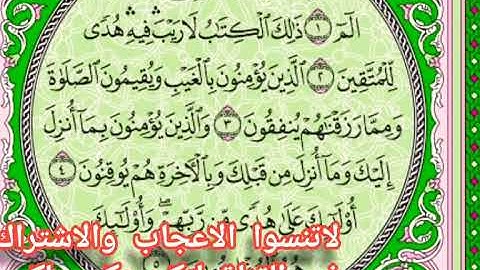 الٓمٓ ۝١ ذَٰلِكَ ٱلْكِتَٰبُ لَا رَيْبَ ۛ فِيهِ ۛ هُدًى
لِّلْمُتَّقِينَ ۝٢ ٱلَّذِينَ يُؤْمِنُونَ بِٱلْغَيْبِ وَيُقِيمُونَ ٱلصَّلَوٰةَ
وَمِمَّا رَزَقْنَٰهُمْ يُنفِقُونَ ۝٣ وَٱلَّذِينَ يُؤْمِنُونَ بِمَآ أُنزِلَ
إِلَيْكَ وَمَآ أُنزِلَ مِن قَبْلِكَ وَبِٱلْأٓخِرَةِ هُمْ يُوقِنُونَ ۝٤
أُو۟لَٰٓئِكَ عَلَىٰ هُدًى مِّن رَّبِّهِمْ ۖ وَأُو۟لَٰٓئِكَ
لاتنسوا الاعجاب والاشتراك